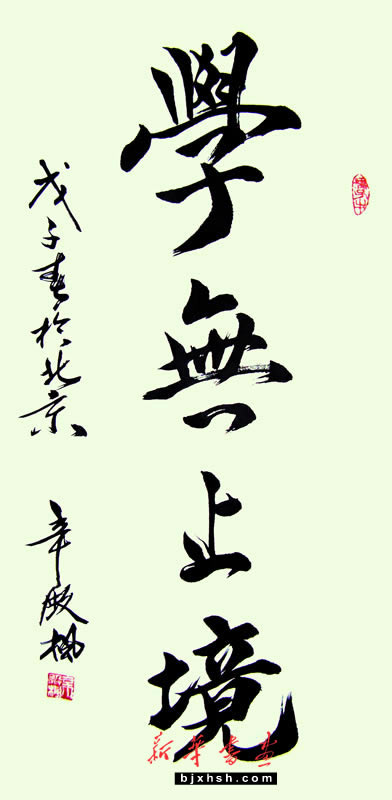 學無止境
戊子春於北京
辛殿楓
新華書画
bjxhsh.com